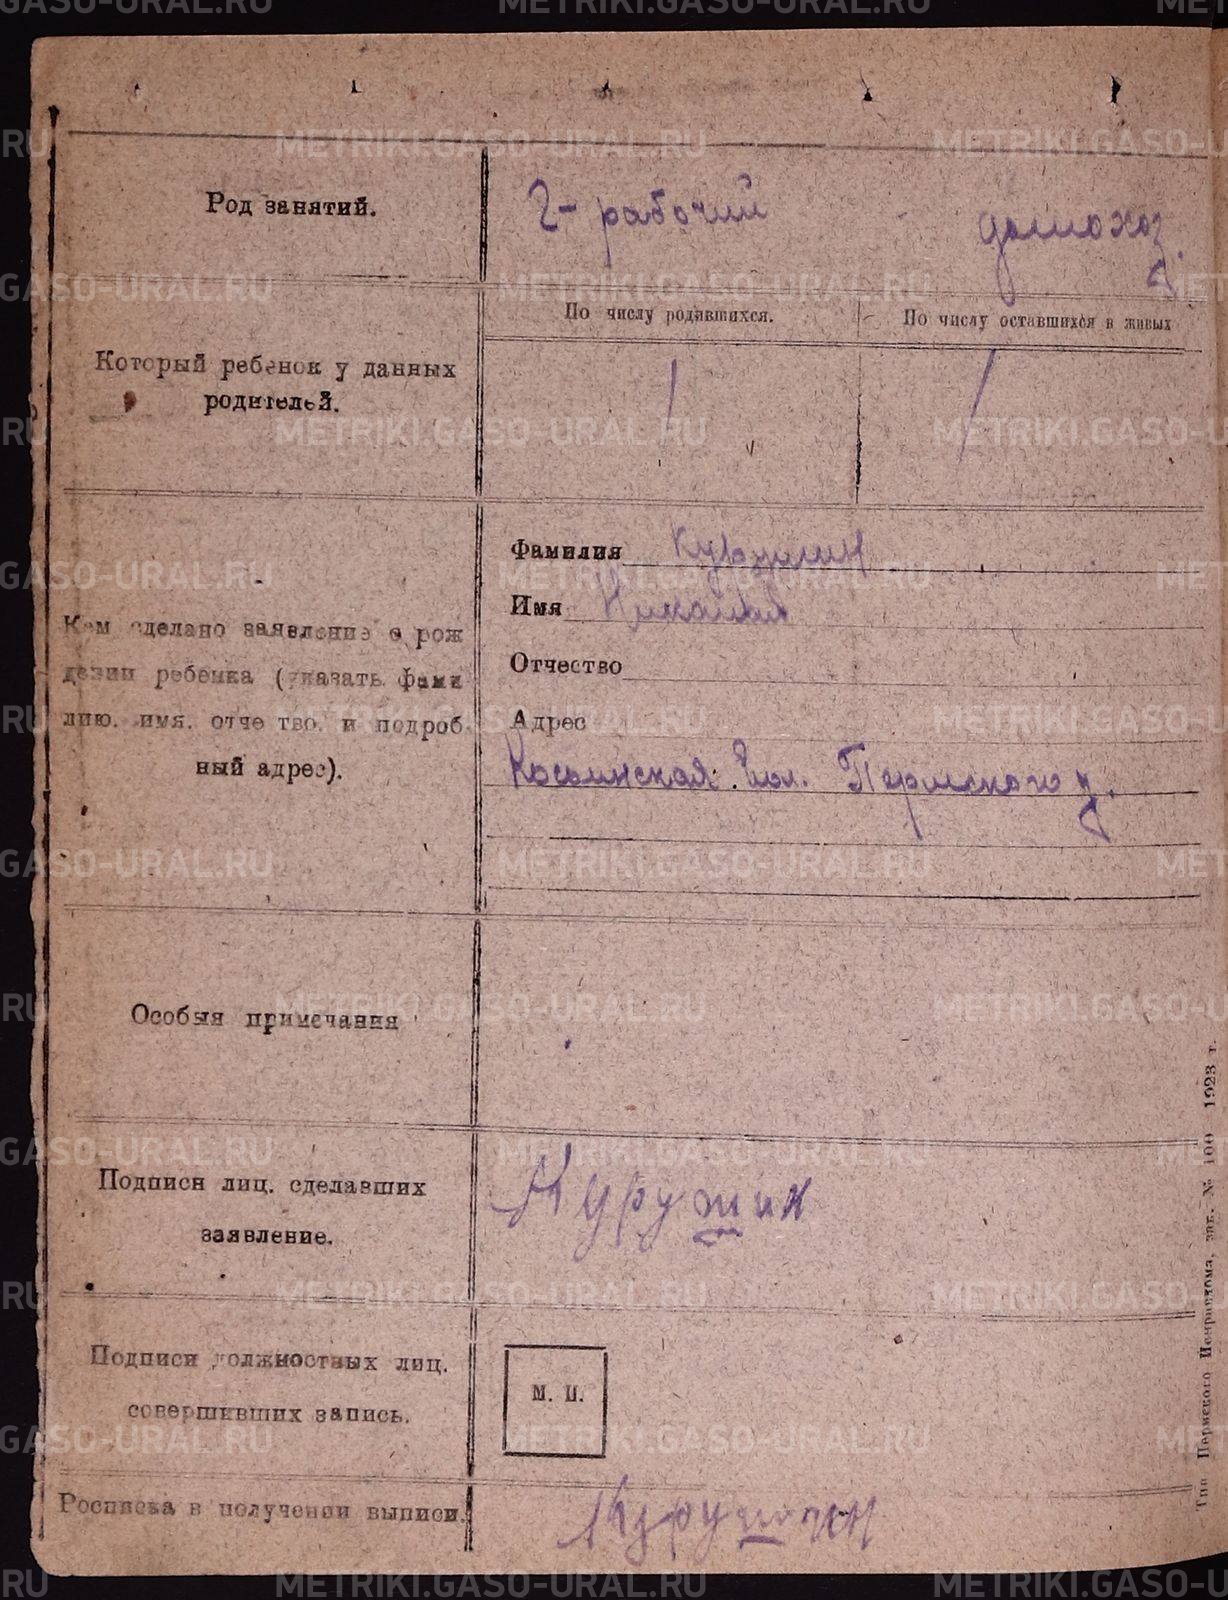 METRIKI.GASO-URAL.RU
Род занятий.
рабочий домохоз.
По числу родившихся. По числу оставшихся в живых
Который ребенок у данных
родителей.
1 1
Фамилия
Имя Николай
Кем сделано заявление о рож
дении ребенка (указать фами
лию. имя. отчество. и подроб
ный адрес).
Отчество
Адрес
вол. Пермского у.
Особыя примечания
Подписи лиц. сделавших
заявление.
Подписи должностных лиц.
совершивших запись.
М. П.
Росписка в получении выписи.
Тип Пермского Исправдома, зак. № 100 1923 г.